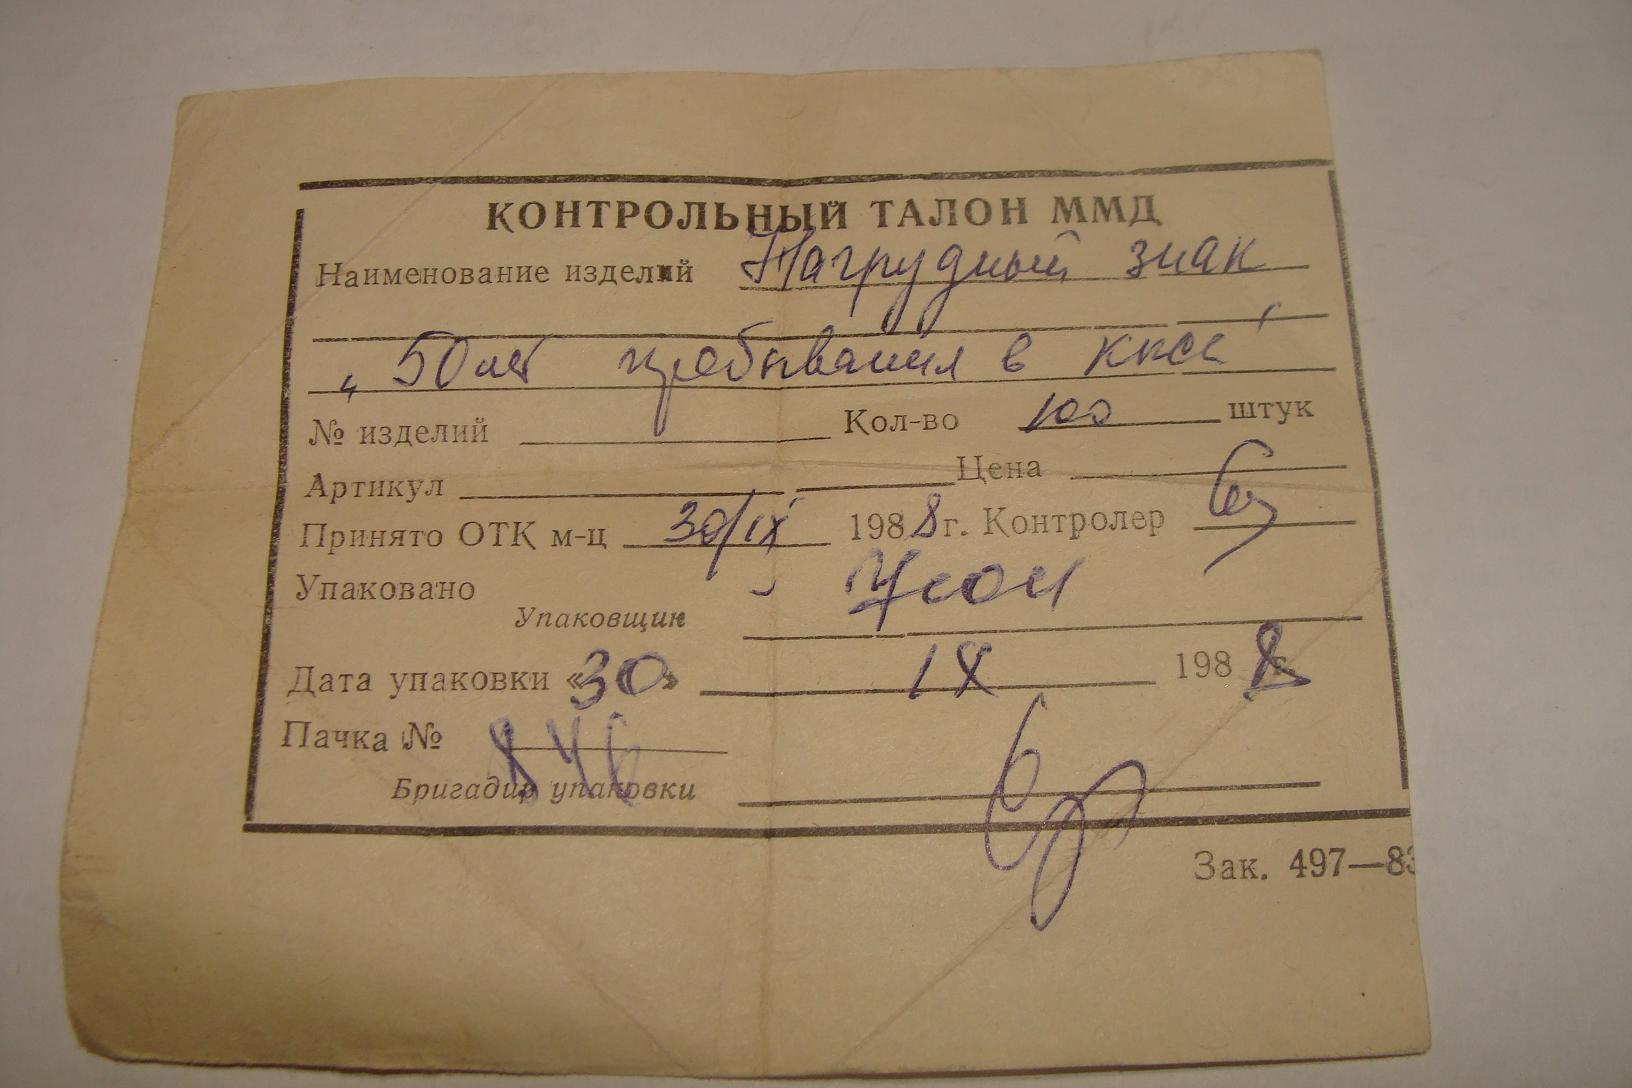 КОНТРОЛЬНЫЙ ТАЛОН ММД
Наименование изделий Нагрудный знак
„50 лет пребывания в КПСС"
№ изделий Кол-во 100 штук
Артикул Цена
Принято ОТК м-ц 30/IX 1988г. Контролер
Упаковано
Упаковщик
Дата упаковки «30» IX 1988г.
Пачка № 846
Бригадир упаковки
Зак. 497—83